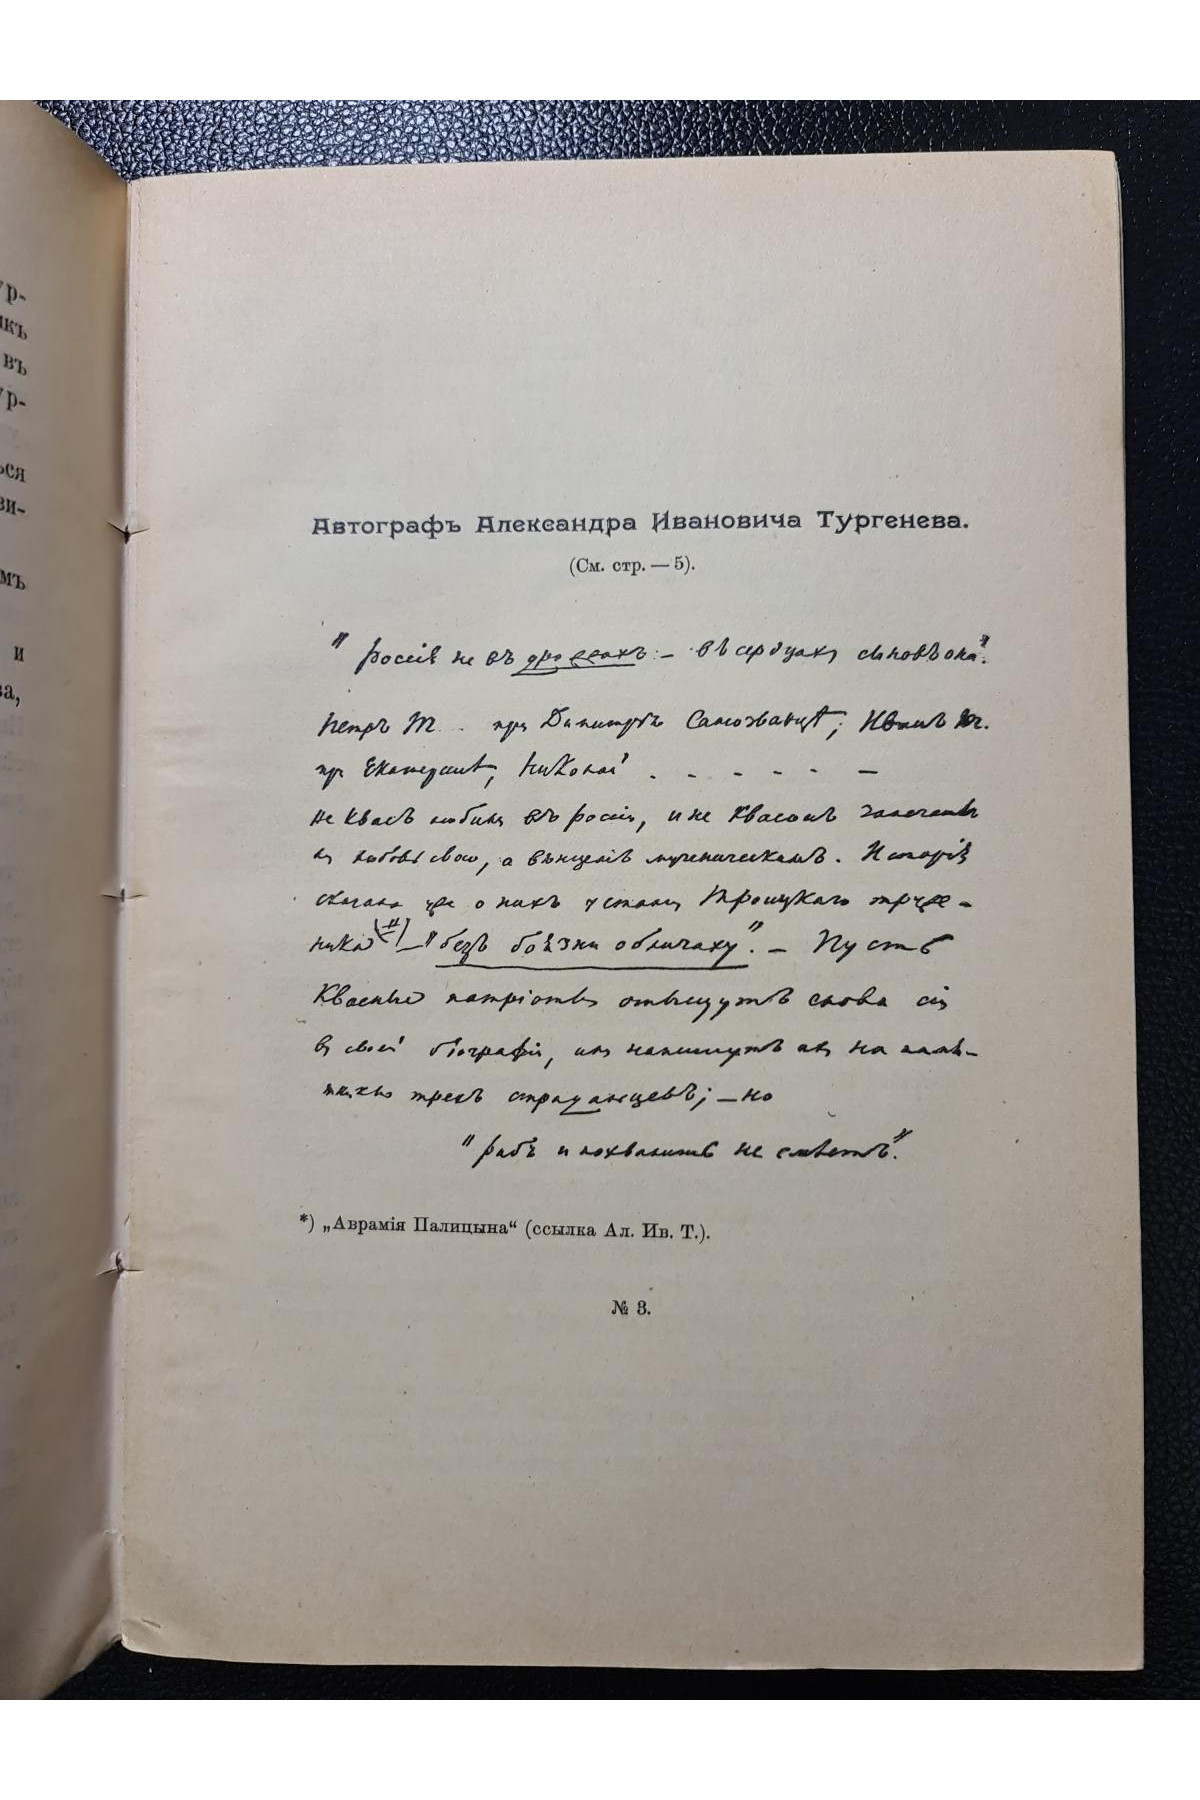 ур-
икъ
въ
ур-
ься
зи-
мъ
и
ва,
Автографъ Александра Ивановича Тургенева.
(См. стр. — 5).
"Россія не въ — въ сердцахъ сыновъ она".
Петръ Т. . при Димитріѣ Самозванцѣ; Иванъ
пр. Екатеринѣ, Николай . - - - - - —
не квасъ любили въ Россіи, и не квасомъ запечатлѣ
ли любовь свою, а вѣнцемъ мученическимъ. Исторія
сказала уже о нихъ устами Троицкаго труже-
ника *) — "безъ боязни обличаху". — Пусть
Квасные патріоты отыщутъ слова сіи
въ своей біографіи, или напишутъ ихъ на памя-
трехъ страдальцевъ; — но
"рабъ и похвалить не смѣетъ".
*) „Аврамія Палицына“ (ссылка Ал. Ив. Т.).
№ 3.